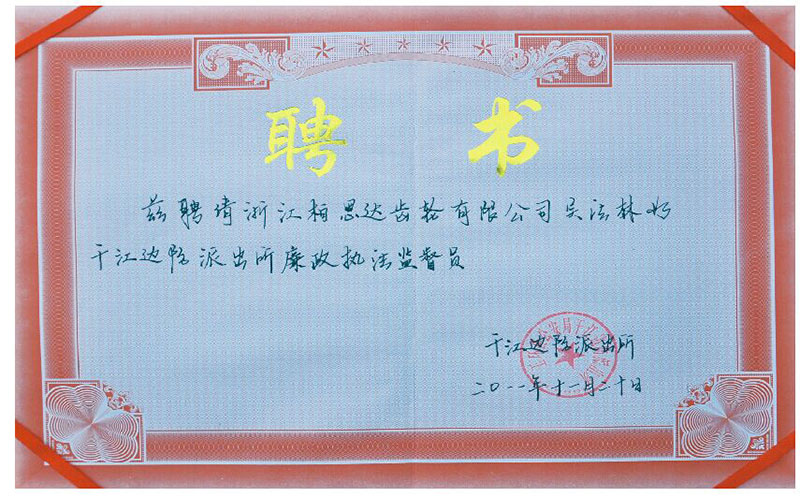 聘 书
兹聘请浙江柏思达齿轮有限公司吴法林为
干江边防派出所廉政执法监督员
干江边防派出所
二〇一一年十一月二十日